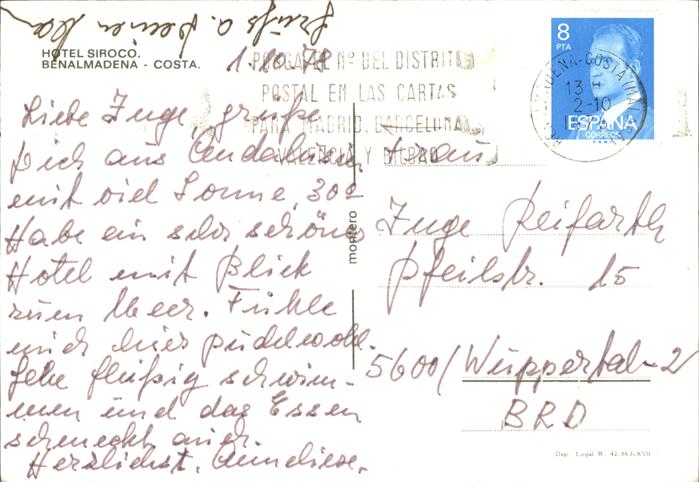 Grüße a. Deinen
HOTEL SIROCO.
BENALMADENA - COSTA.
1.10.78
PONGA EL Nº DEL DISTRITO
POSTAL EN LAS CARTAS
PARA MADRID, BARCELONA,
VALENCIA Y BILBAO
8
PTA
BENALMADENA-COSTA (MALAGA)
13 H
2-10
ESPAÑA
CORREOS
F.N.M.T.
Liebe Inge, grüße
Dich aus Andalusien
mit viel Sonne, 30º
Habe ein sehr schönes
Hotel mit Blick
zum Meer. Fühle
mich hier pudelwohl.
Gehe fleißig schwim-
men und das Essen
schmeckt auch.
Herzlichst, Anneliese.
montero
Frau
Inge Reifarth
Pfeilstr. 15
5600/Wuppertal-2
BRD
Dep. Legal B. 42.663-XVII